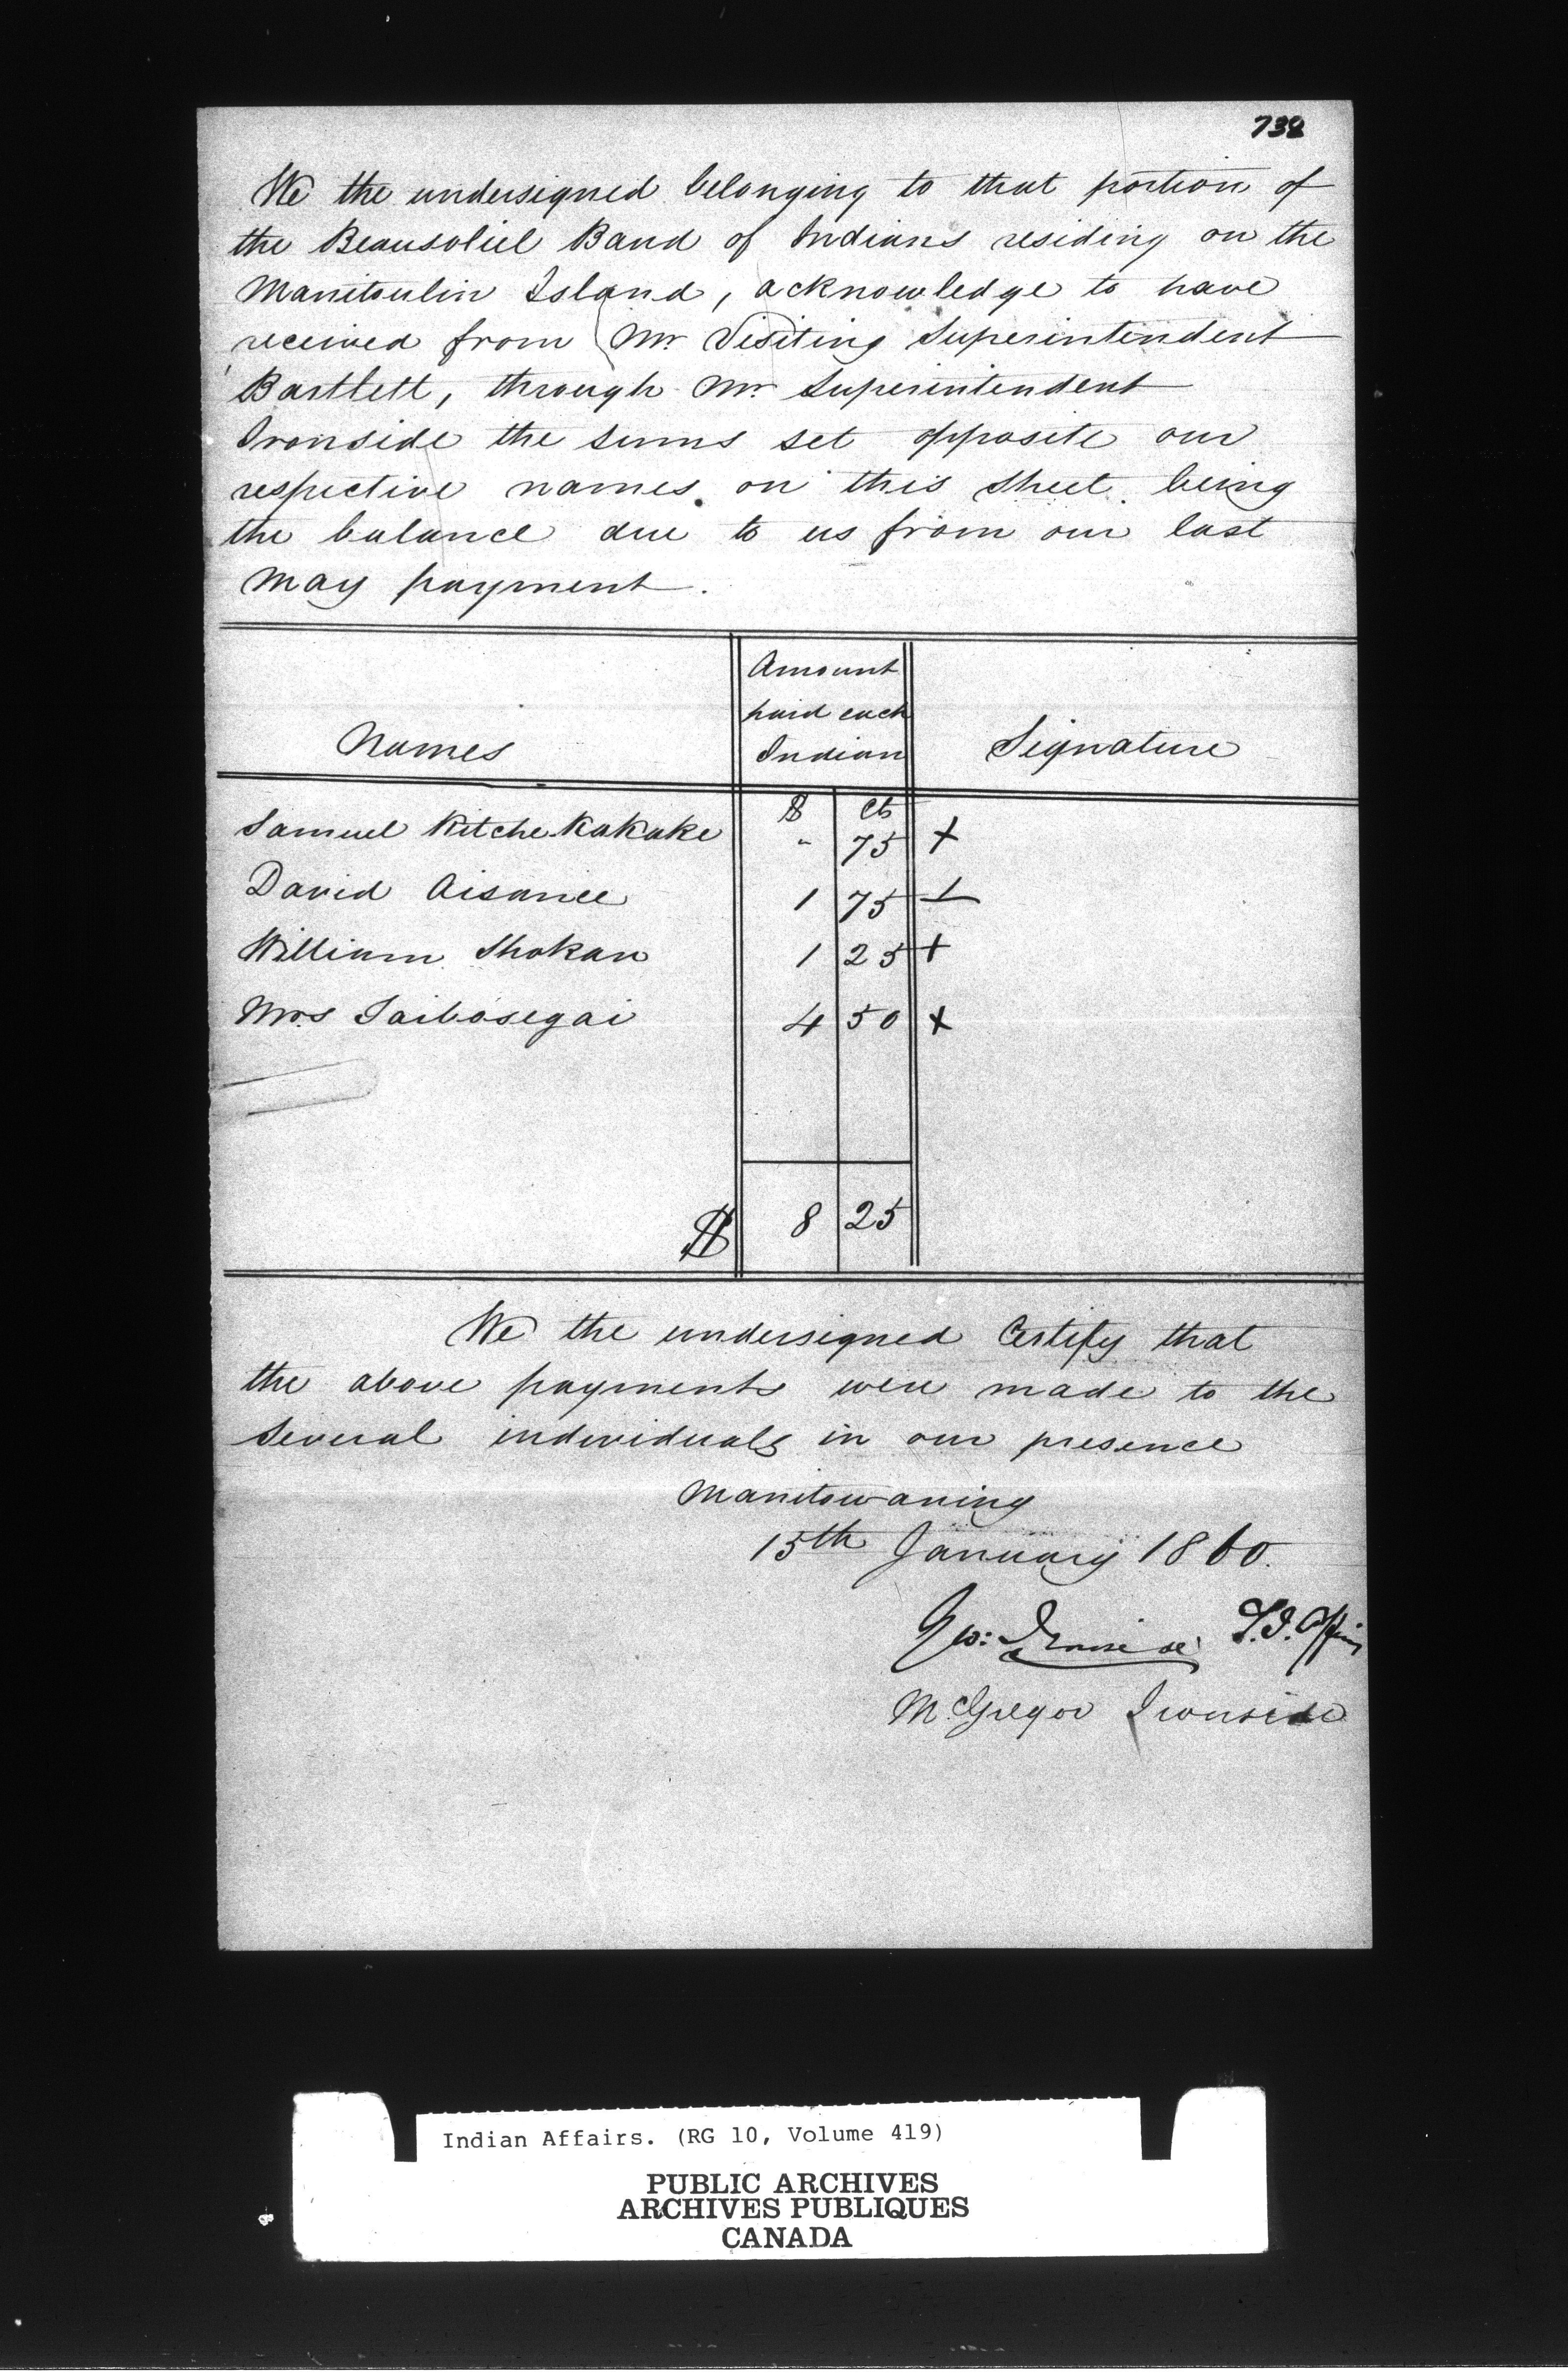 738
We the undersigned belonging to that portion of
the Beausoliel Band of Indians residing on the
Manitoulin Island, acknowledge to have
received from Mr Visiting Superintendent
Bartlett, through Mr Superintendent
Ironside the sums set opposite our
respective names on this sheet being
the balance due to us from our last
May payment.
Names
Amount
paid each
Indian
Signature
$ Cts
Samuel KitcheKakake - 75 +
David Aisance 1 75 +
William Shokan 1 25 +
Mrs Saibosegai 4 50 +
$ 8 25
We the undersigned Certify that
the above payments were made to the
Several individuals in our presence
Manitowaning
15th January 1860.
Geo: Ironside S.I. Affairs
McGregor Ironside
Indian Affairs. (RG 10, Volume 419)
PUBLIC ARCHIVES
ARCHIVES PUBLIQUES
CANADA